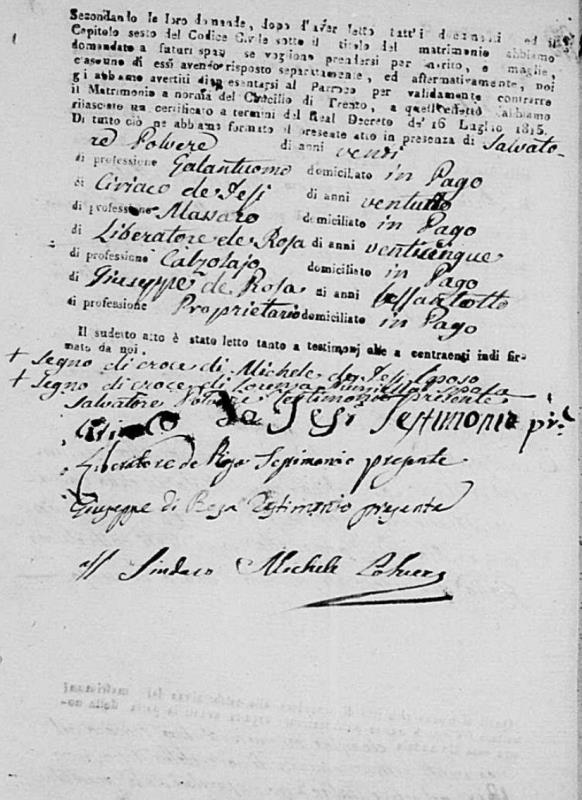 Secondando le loro domande, dopo d'aver letto tutt'i documenti ed il
Capitolo sesto del Codice Civile sotto il titolo del matrimonio abbiamo
domandato a' futuri sposi se vogliono prendersi per marito, e moglie,
e ciascuno di essi avendo risposto separatamente, ed affermativamente, noi
gl abbiamo avertiti di presentarsi al Parroco per validamente contrarre
il Matrimonio a norma del Concilio di Trento, a quell'effetto abbiamo
rilasciato un certificato a termini del Real Decreto de' 16 Luglio 1815.
Di tutto ciò ne abbiamo formato il presente atto in presenza di Salvato-
re Polvere di anni venti
di professione Galantuomo domiciliato in Pago
di Ciriaco de Jesi di anni ventotto
di professione Massaro domiciliato in Pago
di Liberatore de Rosa di anni venticinque
di professione Calzolajo domiciliato in Pago
di Giuseppe de Rosa di anni sessantotto
di professione Proprietario domiciliato in Pago
Il sudetto atto è stato letto tanto a testimonj che a contraenti indi fir-
mato da noi
+ Segno di croce di Michele de Jesi Sposo
+ Segno di croce di Sposa
Salvatore Testimonio presente
de Jesi Testimonio pre.
Liberatore de Rosa Testimonio presente
Giuseppe di Rosa Testimonio presente
Sindaco Michele Polvere